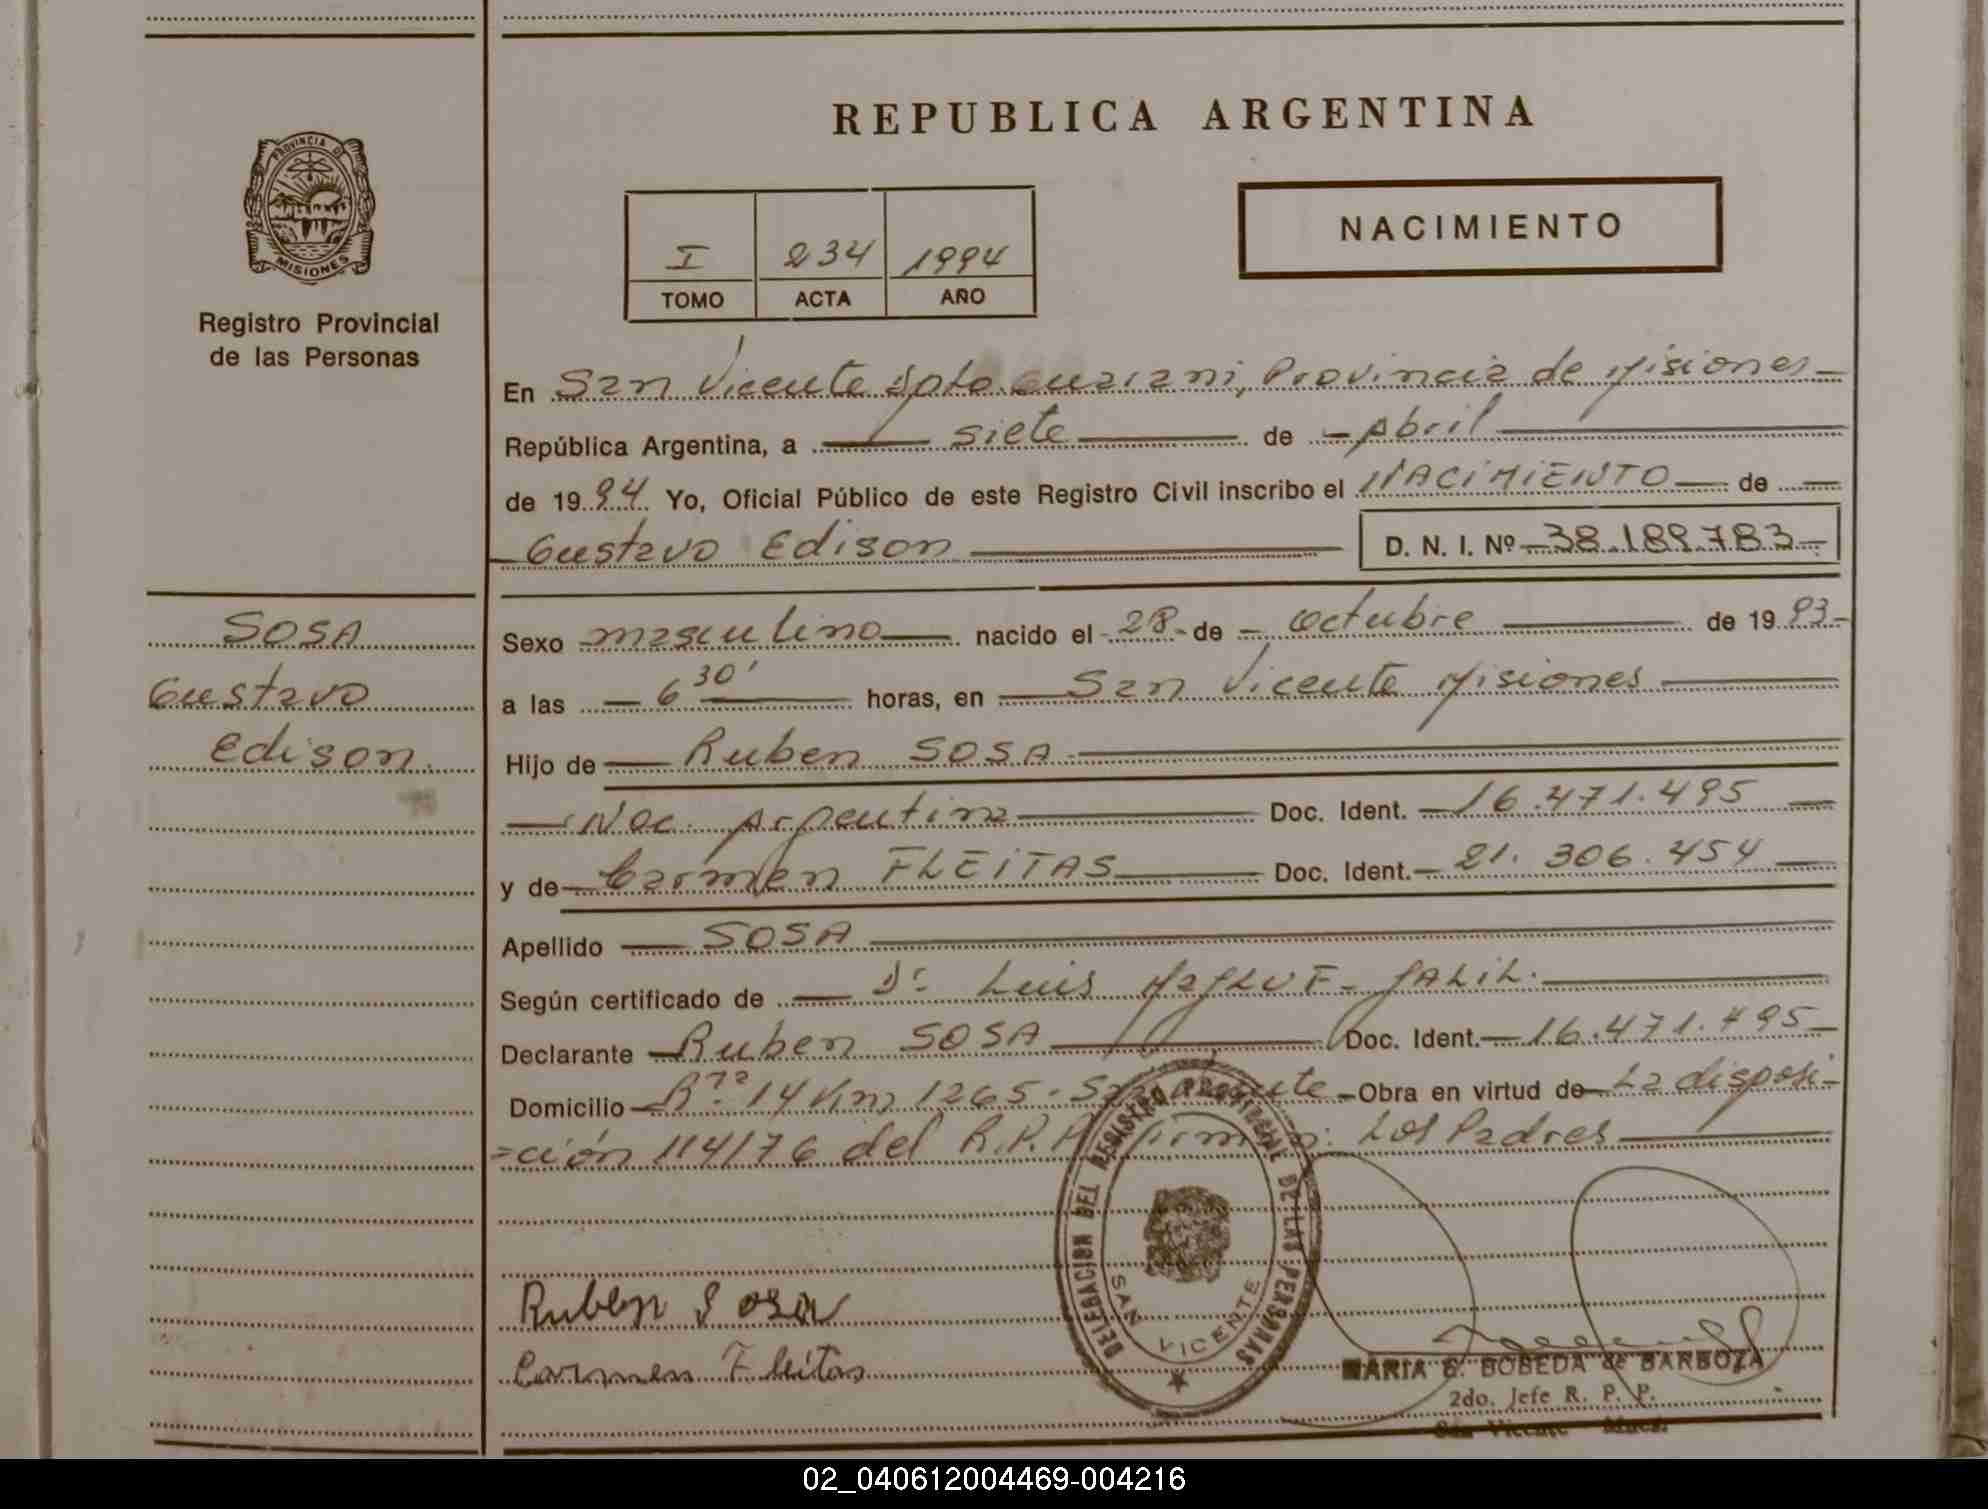 PROVINCIA DE
MISIONES
Registro Provincial
de las Personas
SOSA
Gustavo
Edison.
REPUBLICA ARGENTINA
I 234 1994
TOMO ACTA AÑO
NACIMIENTO
En San Vicente Dpto. Guarani, Provincia de Misiones
República Argentina, a siete de Abril
de 1994 Yo, Oficial Público de este Registro Civil inscribo el NACIMIENTO de
Gustavo Edison D. N. I. Nº 38.189.783
Sexo masculino nacido el 28 de octubre de 1993
a las 6 30' horas, en San Vicente Misiones
Hijo de Ruben SOSA
Nac. Argentina Doc. Ident. 16.471.495
y de Carmen FLEITAS Doc. Ident. 21.306.454
Apellido SOSA
Según certificado de Dr. Luis JALIL.
Declarante Ruben SOSA Doc. Ident. 16.471.495
Domicilio Rta. 14 Km 1265 - San Vicente - Obra en virtud de La disposi-
=ción 114/76 del R.P.P. Firman: Los Padres
Ruben Sosa
Carmen Fleitas
DELEGACION DEL REGISTRO PROVINCIAL DE LAS PERSONAS
SAN VICENTE
MARIA E. BOBEDA de BARBOZA
2do. Jefe R. P. P.
San Vicente Mnes.
02_040612004469-004216